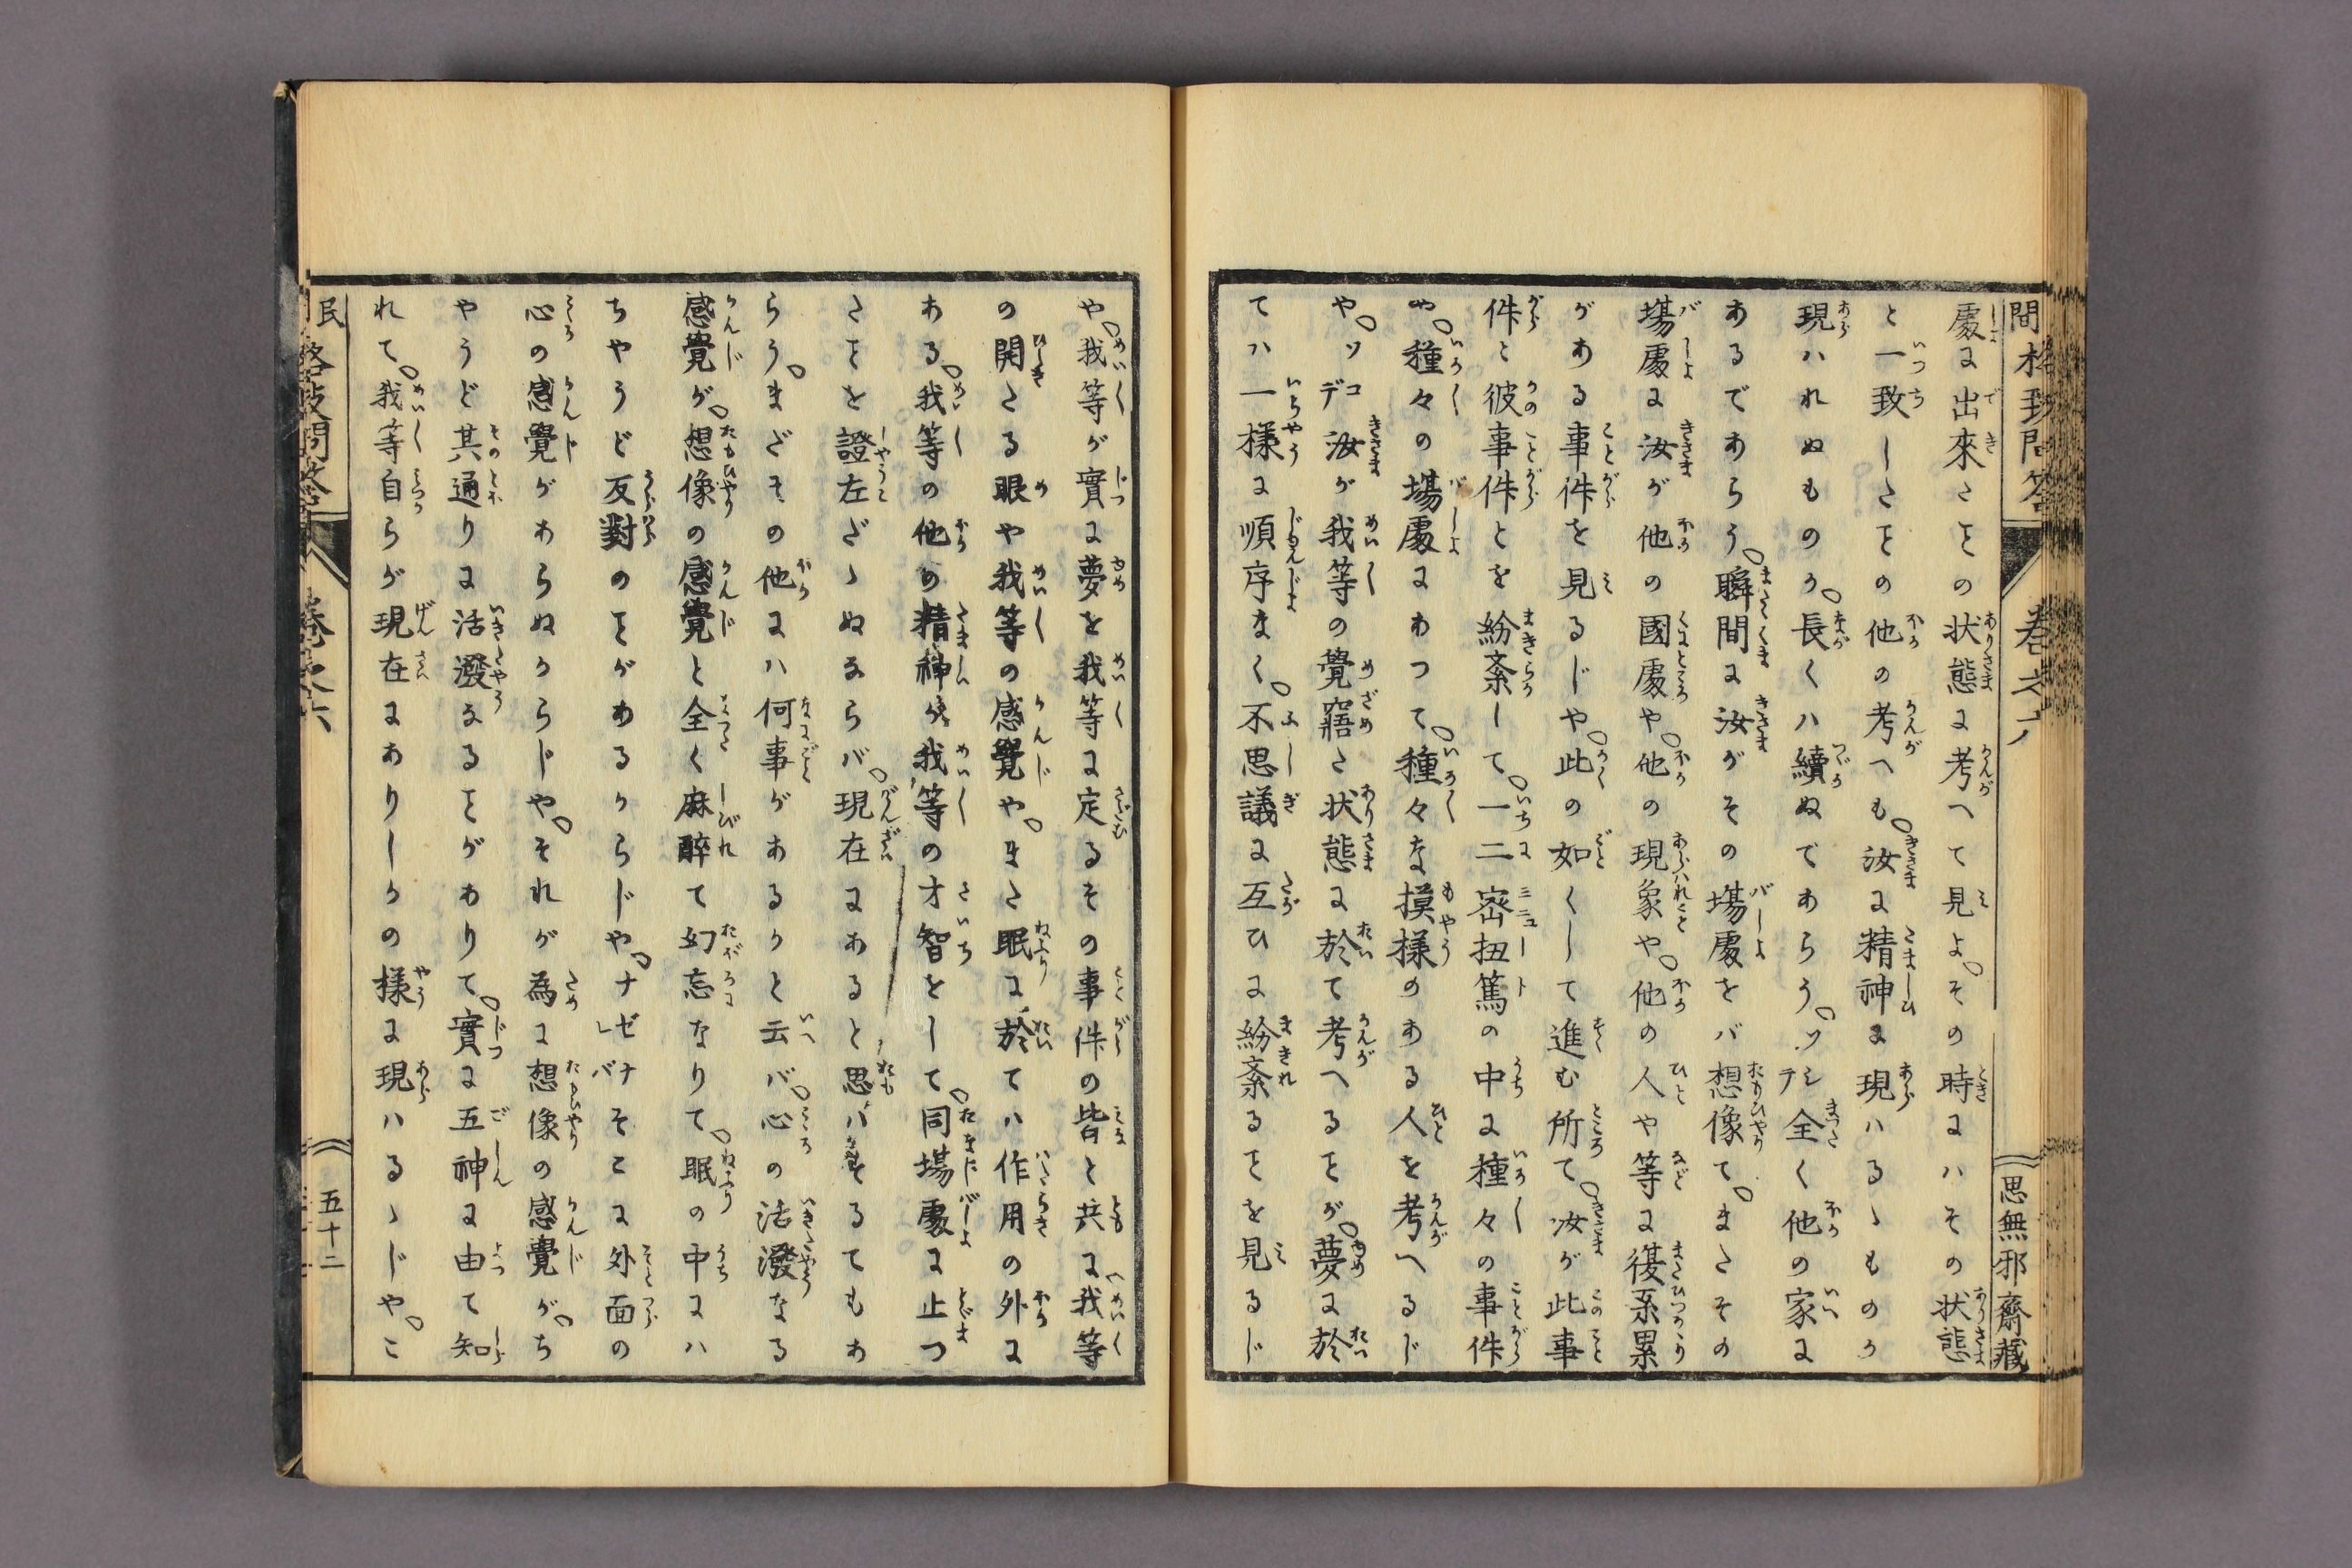 間格致問答
卷之六
思無邪齋藏
處に出來たその状態に考へて見よ。その時にハその状態
と一致したその他の考へも。汝に精神に現ハるゝものか
現ハれぬものか。長くハ續ぬであらう。ソシテ全く他の家に
あるであらう。瞬間に汝がその塲處をバ想像て。またその
塲處に汝が他の國處や。他の現象や。他の人や等に復系累
がある事件を見るじや。此の如くして進む所て。汝が此事
件と彼事件とを紛紊して。一二密扭篤の中に種々の事件
や。種々の塲處にわつて。種々な摸樣のある人を考へるじ
や。ソコデ汝が我等の覺寤た状態に於て考へるとが。夢に於
てハ一樣に順序まく。不思議に互ひに紛紊るとを見るじ
や。我等が實に夢を我等に定るその事件の皆と共に我等
の開たる眼や我等の感覺や。また眠に於てハ作用の外に
ある。我等の他の精神が我等の才智をして。同塲處に止つ
たとを證左ざゝぬならバ。現在にあると思バそるてもあ
らう。まだその他にハ何事があるかと云バ。心の活潑なる
感覺が。想像の感覺と全く麻醉て幻忘なりて。眠の中にハ
ちやうど反對のとがあるからじや。ナゼナレバそこに外面の
心の感覺があらぬからじや。それが為に想像の感覺が。ち
やうど其通りに活潑なるとがありて。實に五神に由て知
れて。我等自らが現在にありしかの樣に現ハるゝじや。こ
民
格致問答
卷之六
五十二